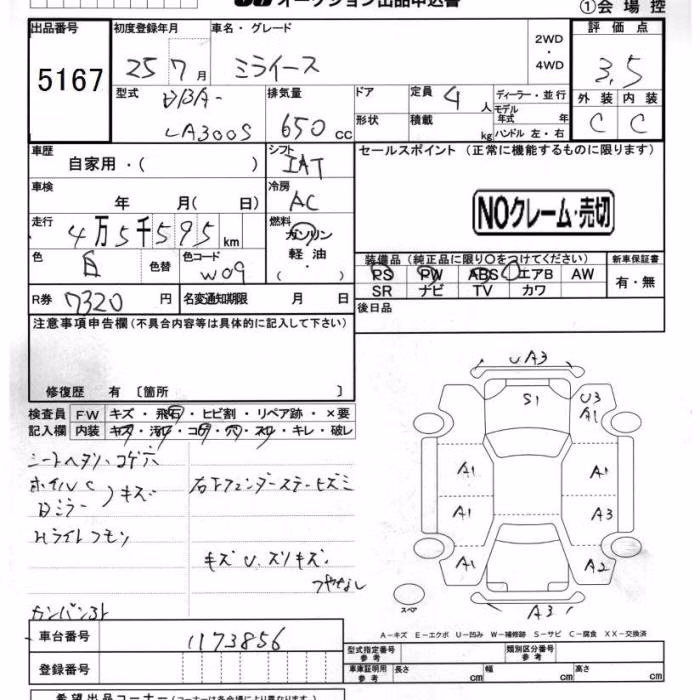 オークション出品申込書
①会場控
出品番号
5167
初度登録年月
25 7月
車名・グレード
ミライース
2WD
・
4WD
評価点
3.5
型式
DBA-
LA300S
排気量
650 CC
ドア
形状
定員 4 人
積載 kg
ディーラー・並行
モデル
年式 年
ハンドル 左・右
外装 内装
C C
車歴
自家用・( )
シフト
IAT
セールスポイント (正常に機能するものに限ります)
車検
年 月( 日)
冷房
AC
NOクレーム・売切
走行
4万5千595 km
燃料
ガソリン
軽油
・( )
色
白
色替
色コード
W09
装備品(純正品に限り〇をつけてください)
PS PW ABS エアB AW
SR ナビ TV カワ
新車保証書
有・無
R券 7320 円
名変通知期限 月 日
後日品
注意事項申告欄(不具合内容等は具体的に記入して下さい)
修復歴 有 〔箇所 〕
検査員
記入欄
FW キズ・飛石・ヒビ割・リペア跡・×要
内装 キズ・汚れ・コゲ・穴・スレ・キレ・破レ
シートヘタリ・コゲ穴
ホイルC
Dミラー
キズ
Hライトクモリ
右下フェンダーステーヒズミ
キズU、ズリキズ
ツヤなし
カンバン3ト
UA3
S1
U3
A1
A1
A1
A1
A3
A1
A2
スペア
A3
A-キズ E-エクボ U-凹み W-補修跡 S-サビ C-腐食 XX-交換済
車台番号
1173856
登録番号
型式指定番号
参考
類別区分番号
参考
車庫証明用
参考
長さ cm
幅 cm
高さ cm
希望出品コーナー(コーナーは各会場により異なります。)